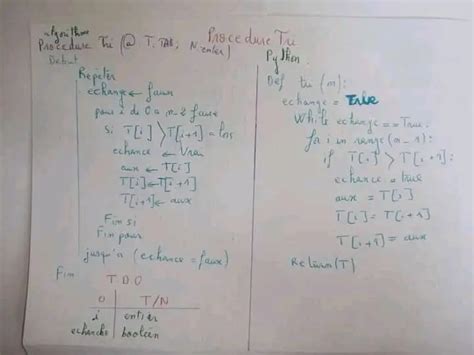 algorithme
Procedure Tri (@ T: TAB; N: entier)
Debut
Repeter
echange ← faux
pour i de 0 a n-2 faire
si T[i] > T[i+1] alors
echance ← Vrai
aux ← T[i]
T[i] ← T[i+1]
T[i+1] ← aux
Fin si
Fin pour
jusqu'a (echance = faux)
Fin
T D O
O T/N
i entier
echancho booleen
Procedure Tri
Python:
Def tri (n):
echange = True
While echange == True:
for i in range (n-1):
if T[i] > T[i+1]:
echance = true
aux = T[i]
T[i] = T[i+1]
T[i+1] = aux
Return(T)